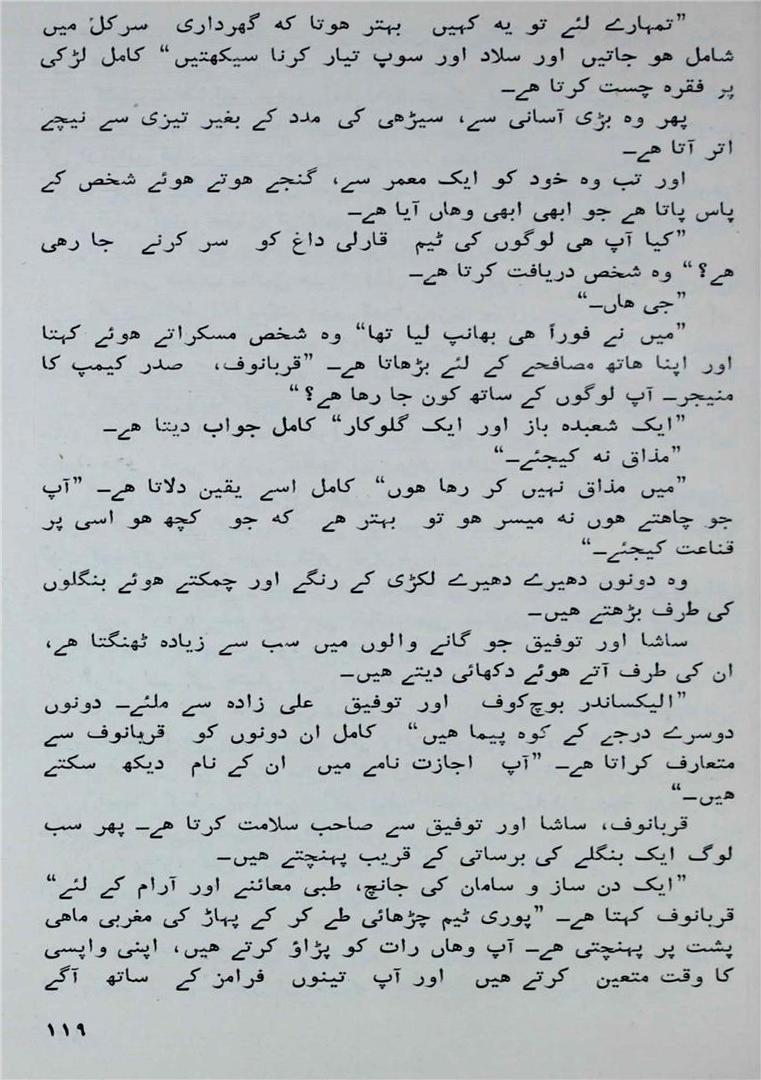 ”تمہارے لئے تو یہ کہیں بہتر ہوتا کہ گھرداری سرکل میں
شامل ہو جاتیں اور سلاد اور سوپ تیار کرنا سیکھتیں“ کامل لڑکی
پر فقرہ چست کرتا ہے۔
پھر وہ بڑی آسانی سے، سیڑھی کی مدد کے بغیر تیزی سے نیچے
اتر آتا ہے۔
اور تب وہ خود کو ایک معمر سے، گنجے ہوتے ہوئے شخص کے
پاس پاتا ہے جو ابھی ابھی وہاں آیا ہے۔
”کیا آپ ہی لوگوں کی ٹیم قارلی داغ کو سر کرنے جا رہی
ہے؟“ وہ شخص دریافت کرتا ہے۔
”جی ہاں۔“
”میں نے فوراً ہی بھانپ لیا تھا“ وہ شخص مسکراتے ہوئے کہتا
اور اپنا ہاتھ مصافحے کے لئے بڑھاتا ہے۔ ”قربانوف، صدر کیمپ کا
منیجر۔ آپ لوگوں کے ساتھ کون جا رہا ہے؟“
”ایک شعبدہ باز اور ایک گلوکار“ کامل جواب دیتا ہے۔
”مذاق نہ کیجئے۔“
”میں مذاق نہیں کر رہا ہوں“ کامل اسے یقین دلاتا ہے۔ ”آپ
جو چاہتے ہوں نہ میسر ہو تو بہتر ہے کہ جو کچھ ہو اسی پر
قناعت کیجئے۔“
وہ دونوں دھیرے دھیرے لکڑی کے رنگے اور چمکتے ہوئے بنگلوں
کی طرف بڑھتے ہیں۔
ساشا اور توفیق جو گانے والوں میں سب سے زیادہ ٹھنگتا ہے،
ان کی طرف آتے ہوئے دکھائی دیتے ہیں۔
”الیکساندر بوچ‌کوف اور توفیق علی زادہ سے ملئے۔ دونوں
دوسرے درجے کے کوہ پیما ہیں“ کامل ان دونوں کو قربانوف سے
متعارف کراتا ہے۔ ”آپ اجازت نامے میں ان کے نام دیکھ سکتے
ہیں۔“
قربانوف، ساشا اور توفیق سے صاحب سلامت کرتا ہے۔ پھر سب
لوگ ایک بنگلے کی برساتی کے قریب پہنچتے ہیں۔
”ایک دن ساز و سامان کی جانچ، طبی معائنے اور آرام کے لئے“
قربانوف کہتا ہے۔ ”پوری ٹیم چڑھائی طے کر کے پہاڑ کی مغربی ماہی
پشت پر پہنچتی ہے۔ آپ وہاں رات کو پڑاؤ کرتے ہیں، اپنی واپسی
کا وقت متعین کرتے ہیں اور آپ تینوں فرامز کے ساتھ آگے
۱۱۹